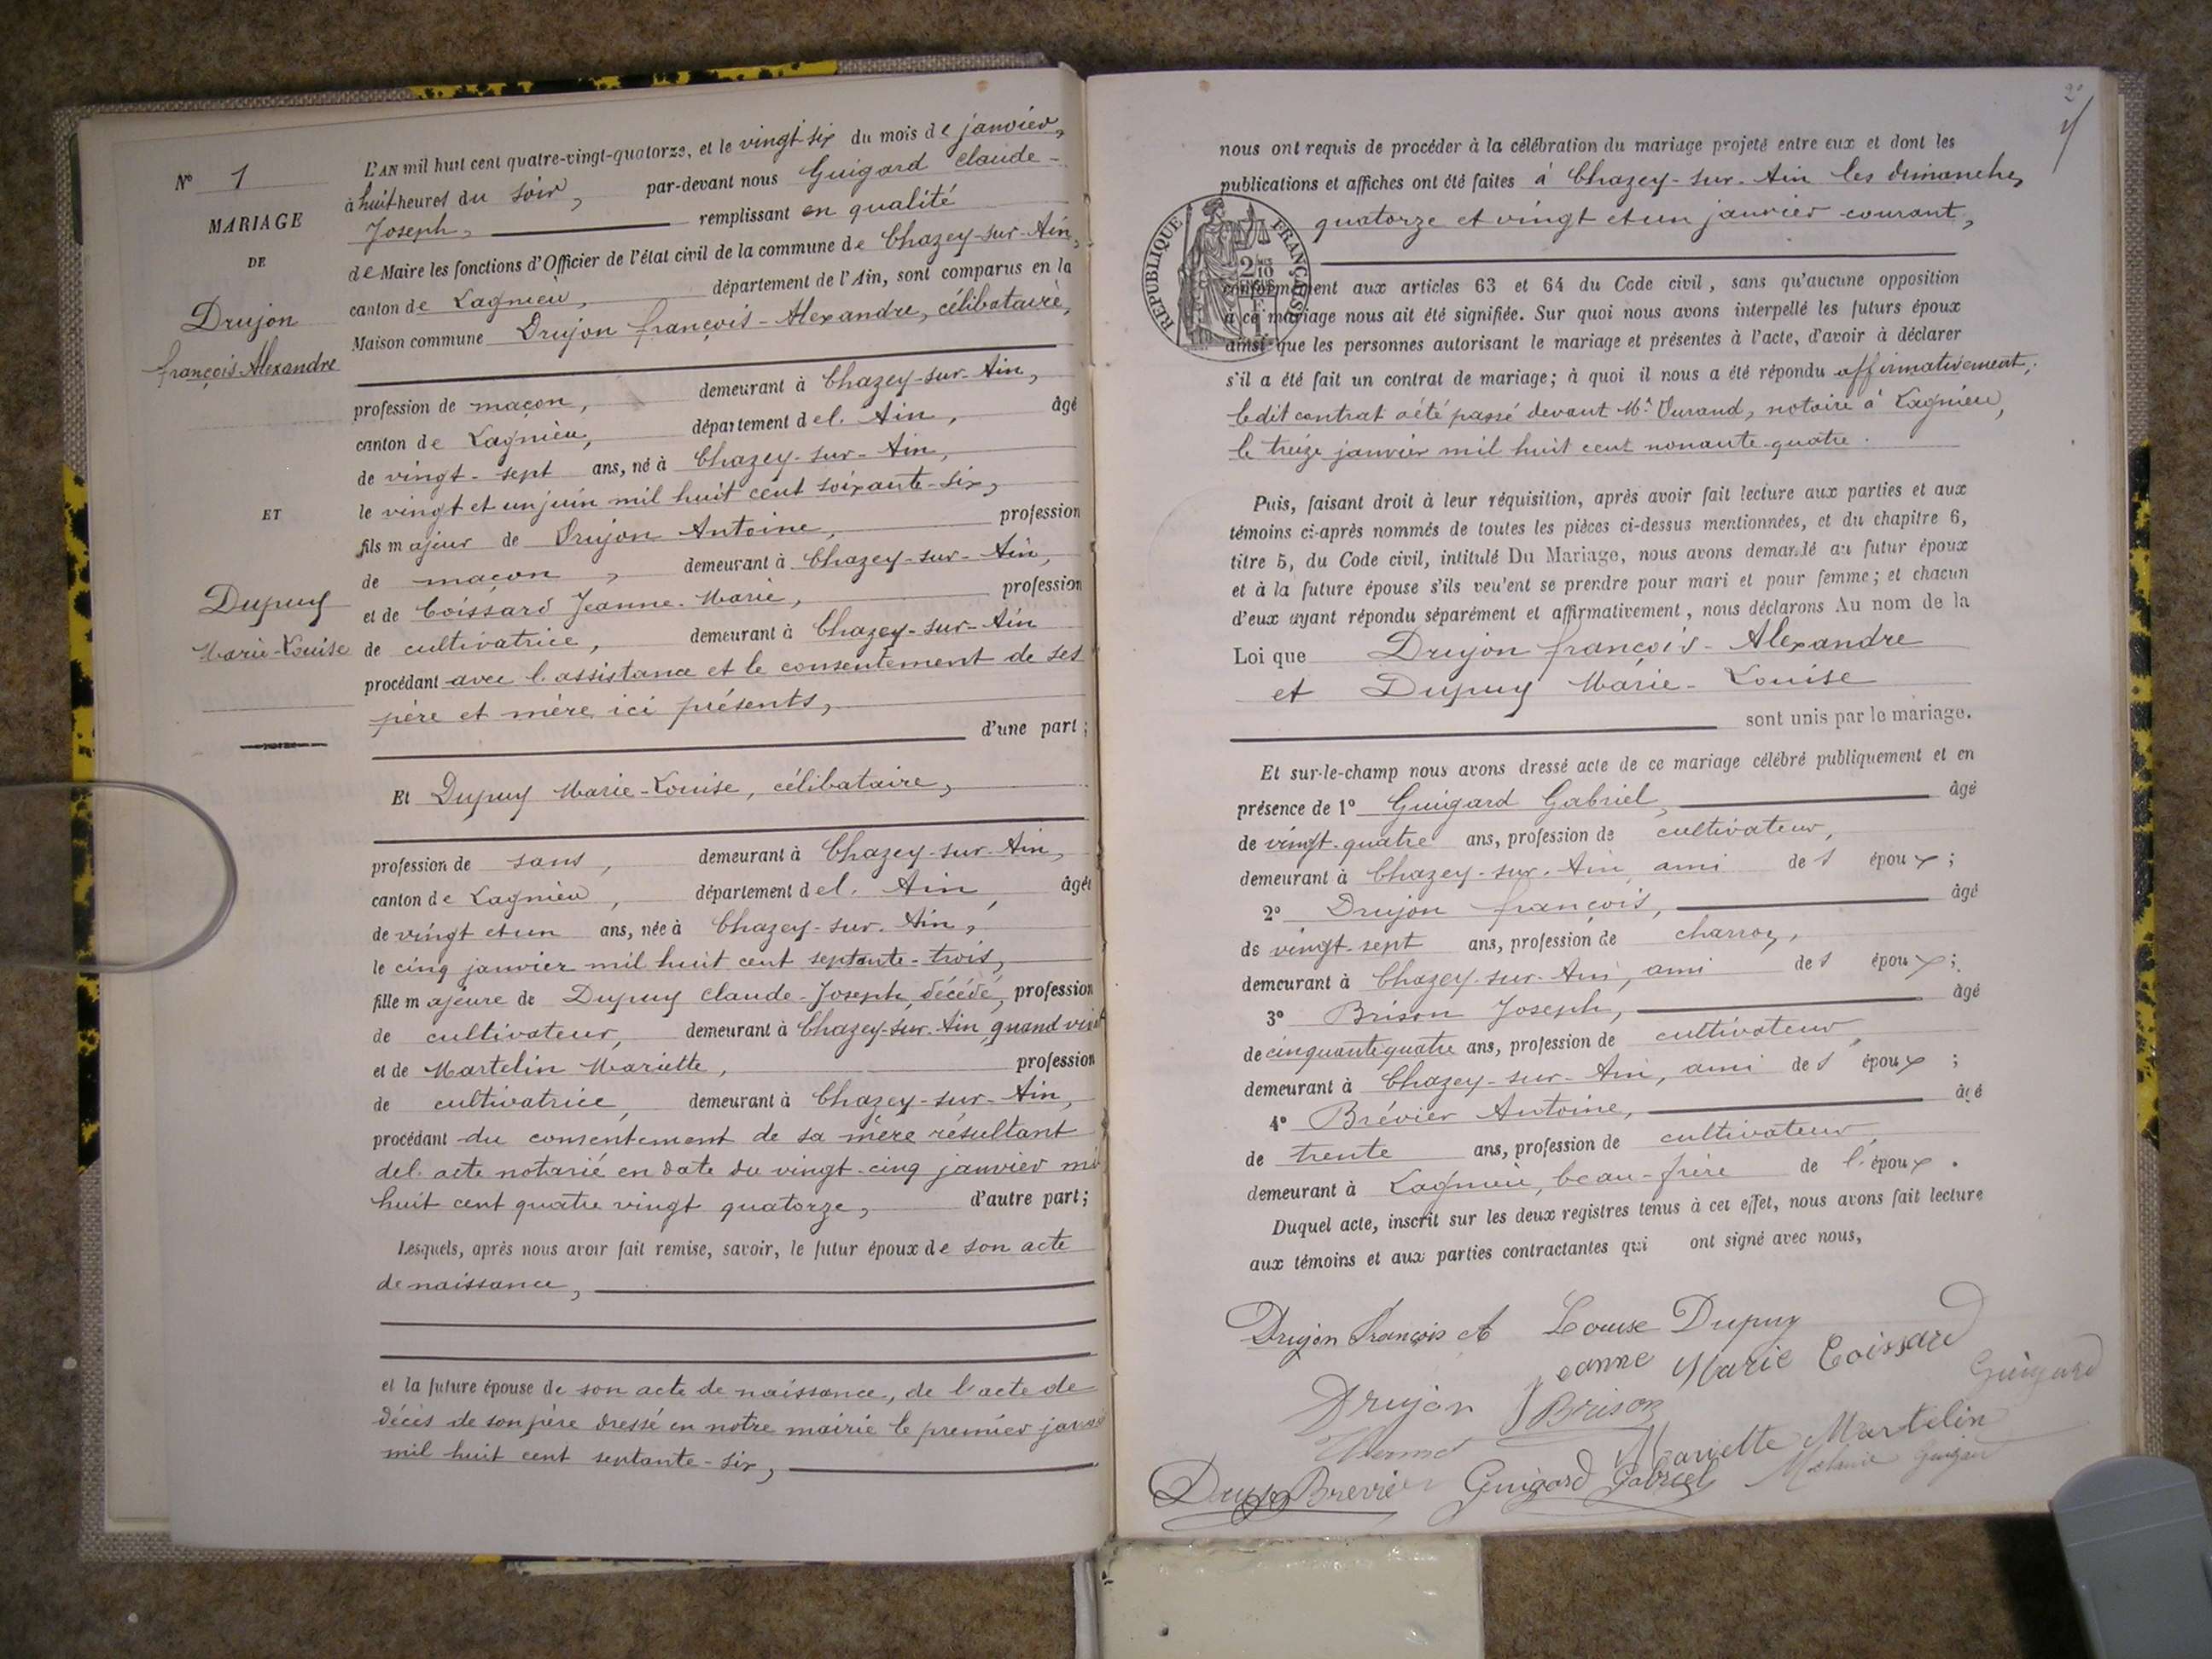 N° 1
MARIAGE
DE
Drujon
françois-Alexandre
ET
Dupuy
Marie-Louise
L'AN mil huit cent quatre-vingt-quatorze, et le vingt-six du mois de janvier,
à huit heures du soir, par-devant nous Guigard Claude-
Joseph, remplissant en qualité
de Maire les fonctions d'Officier de l'état civil de la commune de Chazey-sur-Ain,
canton de Lagnieu, département de l'Ain, sont comparus en la
Maison commune Drujon françois-Alexandre, célibataire,
profession de maçon, demeurant à Chazey-sur-Ain,
canton de Lagnieu, département de l'Ain, âgé
de vingt-sept ans, né à Chazey-sur-Ain,
le vingt et un juin mil huit cent soixante-six,
fils majeur de Drujon Antoine, profession
de maçon, demeurant à Chazey-sur-Ain,
et de Coissard Jeanne-Marie, profession
de cultivatrice, demeurant à Chazey-sur-Ain
procédant avec l'assistance et le consentement de ses
père et mère ici présents,
d'une part;
Et Dupuy Marie-Louise, célibataire,
profession de sans, demeurant à Chazey-sur-Ain,
canton de Lagnieu, département de l'Ain, âgée
de vingt et un ans, née à Chazey-sur-Ain,
le cinq janvier mil huit cent septante-trois,
fille majeure de Dupuy Claude-Joseph, décédé, profession
de cultivateur, demeurant à Chazey-sur-Ain, quand vivait
et de Martelin Mariette, profession
de cultivatrice, demeurant à Chazey-sur-Ain,
procédant du consentement de sa mère résultant
de l'acte notarié en date du vingt-cinq janvier mil
huit cent quatre vingt quatorze, d'autre part;
Lesquels, après nous avoir fait remise, savoir, le futur époux de son acte
de naissance,
et la future épouse de son acte de naissance, de l'acte de
décès de son père dressé en notre mairie le premier janvier
mil huit cent septante-six,
nous ont requis de procéder à la célébration du mariage projeté entre eux et dont les
publications et affiches ont été faites à Chazey-sur-Ain les dimanches
quatorze et vingt et un janvier courant,
RÉPUBLIQUE FRANÇAISE
conformément aux articles 63 et 64 du Code civil, sans qu'aucune opposition
à ce mariage nous ait été signifiée. Sur quoi nous avons interpellé les futurs époux
ainsi que les personnes autorisant le mariage et présentes à l'acte, d'avoir à déclarer
s'il a été fait un contrat de mariage; à quoi il nous a été répondu affirmativement;
ledit contrat a été passé devant Me Durand, notaire à Lagnieu,
le treize janvier mil huit cent nonante-quatre.
Puis, faisant droit à leur réquisition, après avoir fait lecture aux parties et aux
témoins ci-après nommés de toutes les pièces ci-dessus mentionnées, et du chapitre 6,
titre 5, du Code civil, intitulé Du Mariage, nous avons demandé au futur époux
et à la future épouse s'ils veulent se prendre pour mari et pour femme; et chacun
d'eux ayant répondu séparément et affirmativement, nous déclarons Au nom de la
Loi que Drujon françois-Alexandre
et Dupuy Marie-Louise
sont unis par le mariage.
Et sur-le-champ nous avons dressé acte de ce mariage célébré publiquement et en
présence de 1° Guigard Gabriel, âgé
de vingt-quatre ans, profession de cultivateur,
demeurant à Chazey-sur-Ain, ami des époux;
2° Drujon françois, âgé
de vingt-sept ans, profession de charron,
demeurant à Chazey-sur-Ain, ami des époux;
3° Brison Joseph, âgé
de cinquante quatre ans, profession de cultivateur,
demeurant à Chazey-sur-Ain, ami des époux;
4° Brévier Antoine, âgé
de trente ans, profession de cultivateur,
demeurant à Lagnieu, beau-frère de l'époux.
Duquel acte, inscrit sur les deux registres tenus à cet effet, nous avons fait lecture
aux témoins et aux parties contractantes qui ont signé avec nous,
Drujon François A Louise Dupuy
Jeanne Marie Coissard
Drujon Brison Guigard
Mariette Martelin
Brevier Guigard Gabriel Guigard